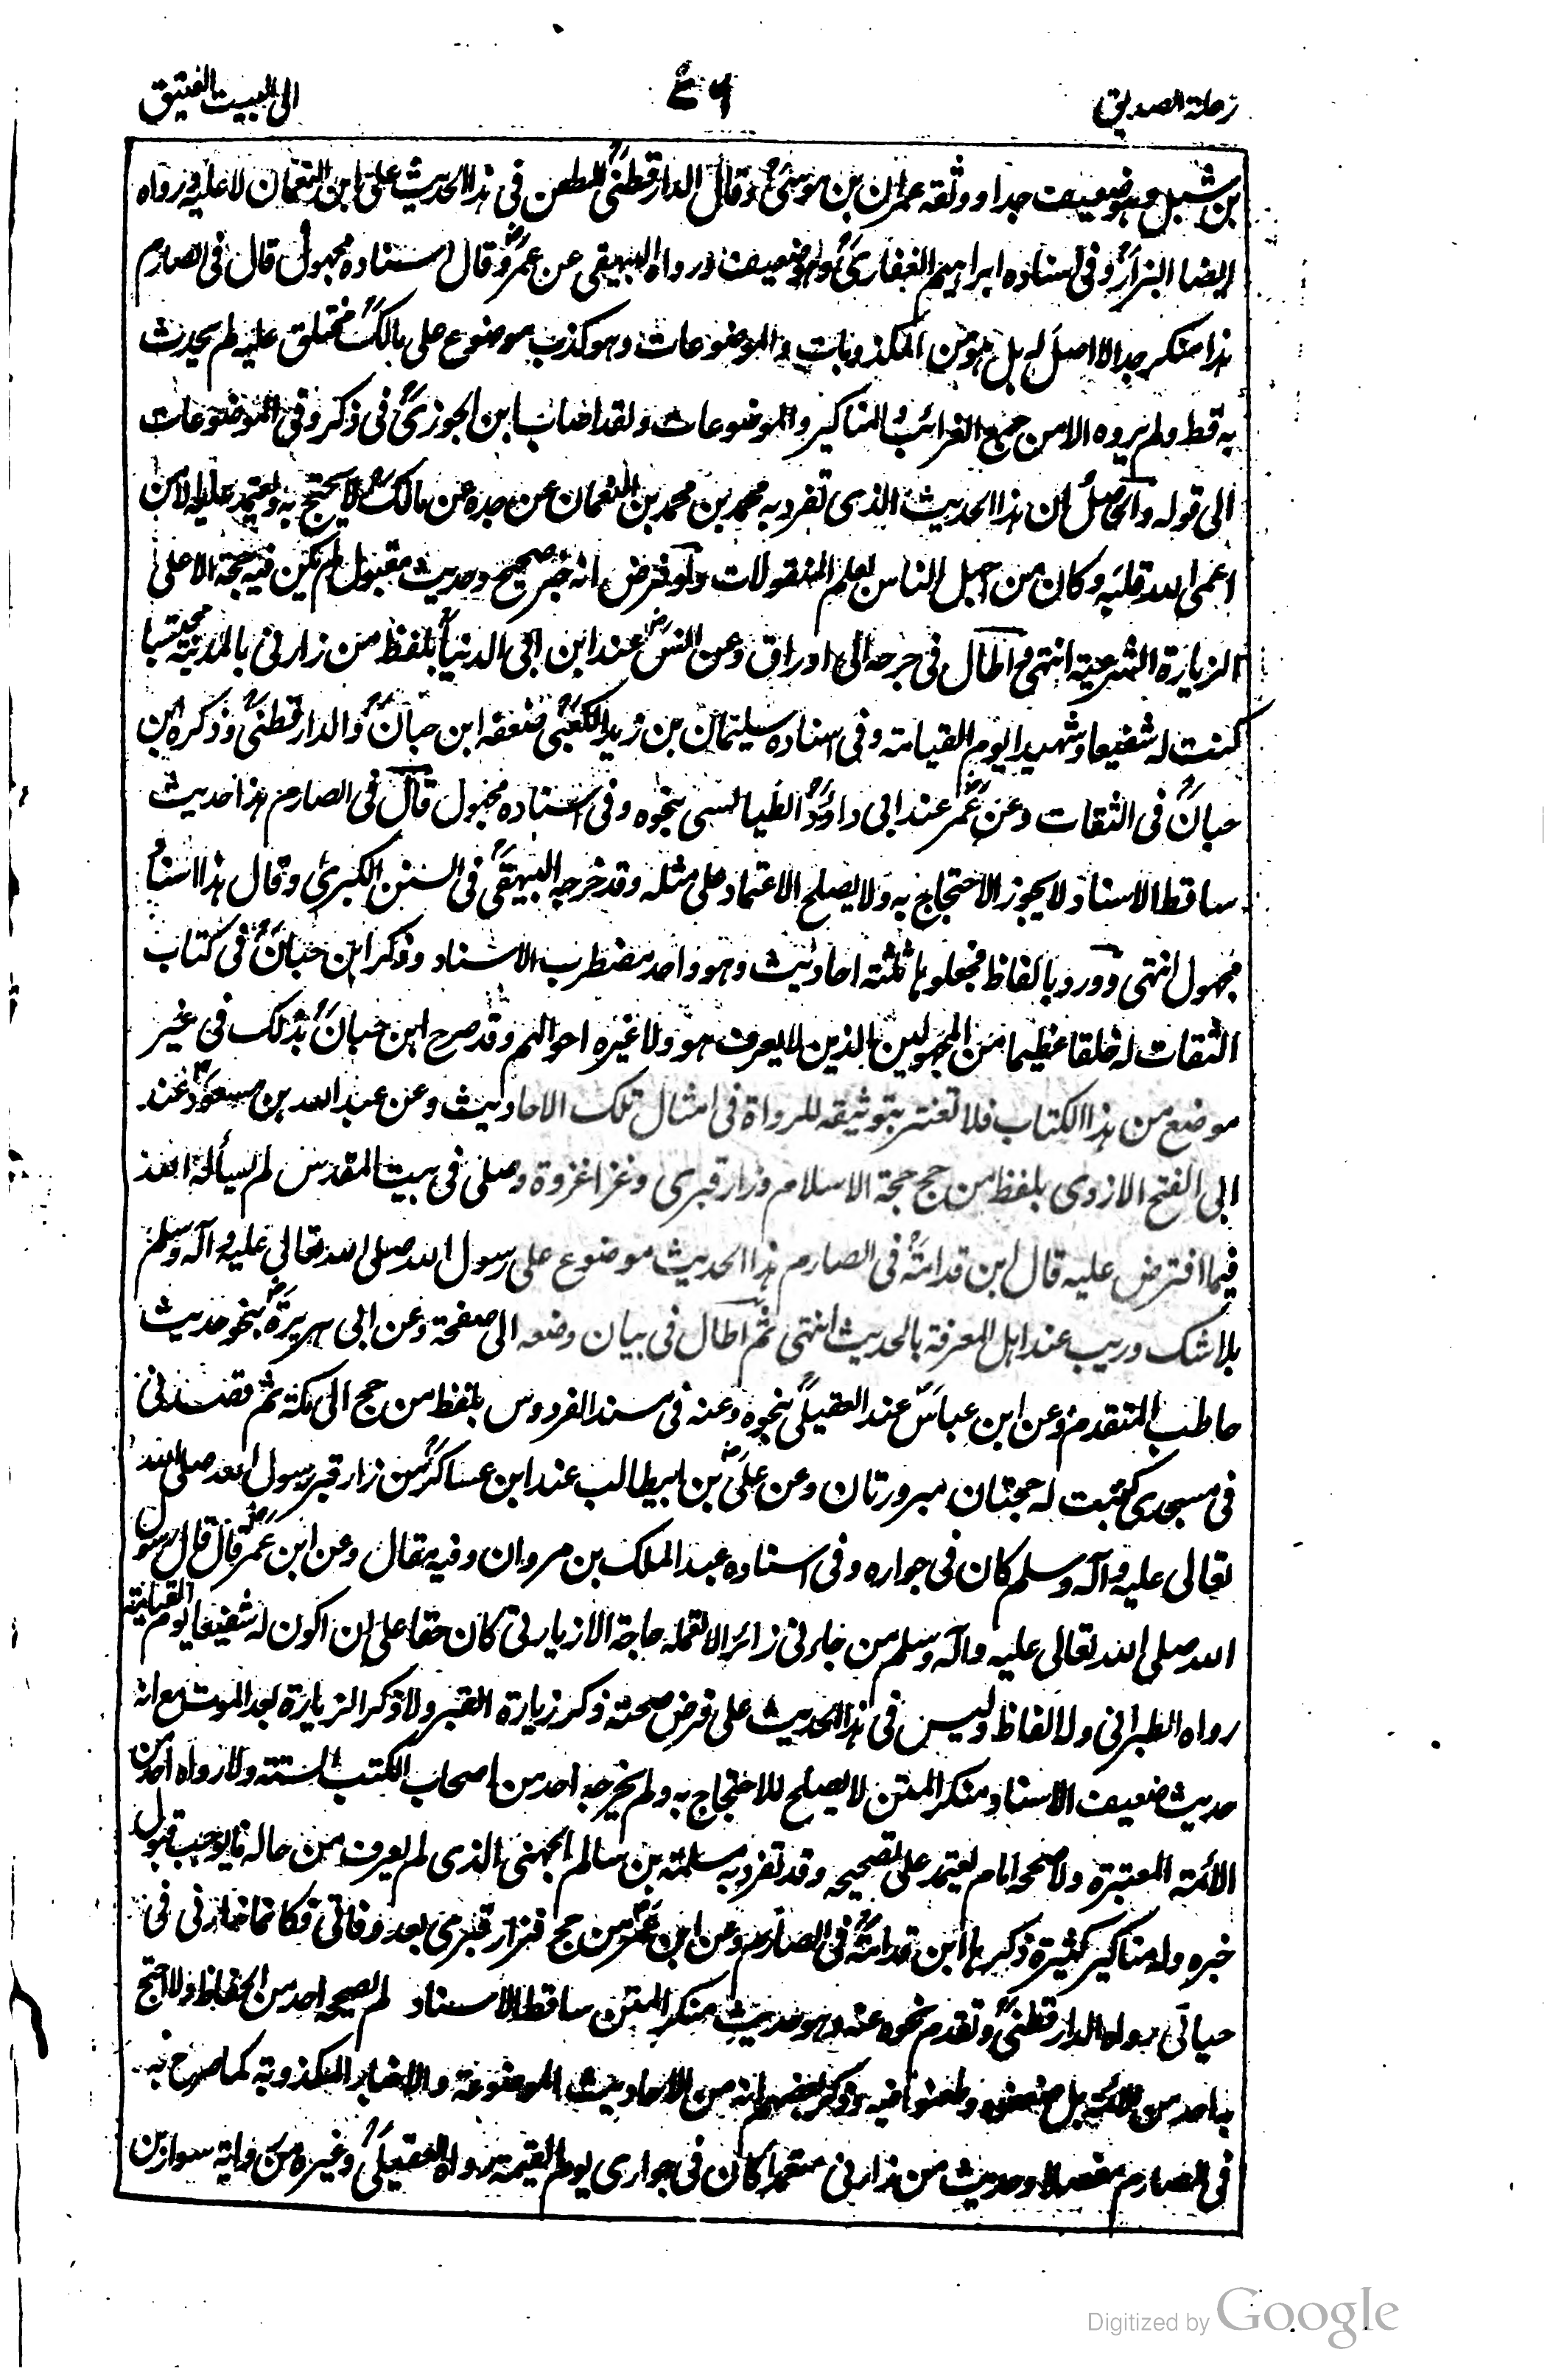 رحلة الصديق
٤٦
الى البيت العتيق
بن شبل وهو ضعيف جدا ووثقه عمران بن موسى وقال الدارقطني الطعن في هذا الحديث على ابن النعمان لا عليه ورواه
ايضا البزار وفي اسناده ابراهيم الغفاري وهو ضعيف ورواه البيهقي عن عمر وقال اسناده مجهول قال في الصارم
هذا منكر جدا لا اصل له بل هو من المكذوبات والموضوعات وهو كذب موضوع على مالك مختلق عليه لم يحدث
به قط ولم يروه الا من جمع الغرائب والمناكير والموضوعات ولقد اصاب ابن الجوزي في ذكره في الموضوعات
الى قوله والحاصل ان هذا الحديث الذي تفرد به محمد بن محمد بن النعمان عن جده عن مالك لا يحتج به ويعتمد عليه الا من
اعمى الله قلبه وكان من اجهل الناس بعلم المنقولات ولو فرض انه خبر صحيح وحديث مقبول لم يكن فيه حجة الا على
الزيارة الشرعية انتهى واطال في جرحه الى اوراق وعن انس عند ابن ابي الدنيا بلفظ من زارني بالمدينة محتسبا
كنت له شفيعا وشهيدا يوم القيامة وفي اسناده سليمان بن زيد الكعبي ضعفه ابن حبان والدارقطني وذكره ابن
حبان في الثقات وعن عمر عند ابي داود الطيالسي بنحوه وفي اسناده مجهول قال في الصارم هذا حديث
ساقط الاسناد لا يجوز الاحتجاج به ولا يصلح الاعتماد على مثله وقد خرجه البيهقي في السنن الكبرى وقال هذا اسناد
مجهول انتهى وورد بالفاظ فجعلوها ثلثة احاديث وهو واحد مضطرب الاسناد وذكر ابن حبان في كتاب
الثقات له خلقا عظيما من المجهولين الذين لا يعرف هو ولا غيره احوالهم وقد صرح ابن حبان بذلك في غير
موضع من هذا الكتاب فلا تغتر بتوثيقه للرواة في امثال تلك الاحاديث وعن عبد الله بن مسعود عند
ابي الفتح الازدي بلفظ من حج حجة الاسلام وزار قبري وغزا غزوة وصلى في بيت المقدس لم يسأله الله
فيما افترض عليه قال ابن قدامة في الصارم هذا الحديث موضوع على رسول الله صلى الله تعالى عليه وآله وسلم
بلا شك وريب عند اهل المعرفة بالحديث انتهى ثم اطال في بيان وضعه الى صفحة وعن ابي هريرة بنحو حديث
حاطب المتقدم وعن ابن عباس عند العقيلي بنحوه وعنه في مسند الفردوس بلفظ من حج الى مكة ثم قصدني
في مسجدي كتبت له حجتان مبرورتان وعن علي بن ابيطالب عند ابن عساكر من زار قبر رسول الله صلى الله
تعالى عليه وآله وسلم كان في جواره وفي اسناده عبد الملك بن مروان وفيه مقال وعن ابن عمر قال قال رسول
الله صلى الله تعالى عليه وآله وسلم من جاءني زائرا لا تعمله حاجة الا زيارتي كان حقا على ان اكون له شفيعا يوم القيامة
رواه الطبراني وله الفاظ وليس في هذا الحديث على فرض صحته ذكر زيارة القبر ولا ذكر الزيارة بعد الموت مع انه
حديث ضعيف الاسناد منكر المتن لا يصلح للاحتجاج به ولم يخرجه احد من اصحاب الكتب الستة ولا رواه احد من
الائمة المعتبرة ولا صححه امام يعتمد على تصحيحه وقد تفرد به مسلمة بن سالم الجهني الذي لم يعرف من حاله ما يوجب قبول
خبره وله مناكير كثيرة ذكرها ابن قدامة في الصارم وعن ابن عمر من حج فزار قبري بعد وفاتي فكانما زارني في
حياتي رواه الدارقطني وتقدم نحوه عنه وهو حديث منكر المتن ساقط الاسناد لم يصححه احد من الحفاظ ولا احتج
به احد من الائمة بل ضعفوه وطعنوا فيه وذكر بعضهم انه من الاحاديث الموضوعة والاخبار المكذوبة كما صرح به
في الصارم مفصلا وحديث من زارني متعمدا كان في جواري يوم القيمة رواه العقيلي وغيره من رواية سوار بن
Digitized by Google